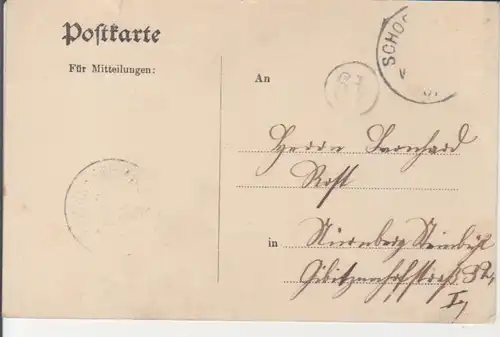 Postkarte
Für Mitteilungen:
An
SCHO
Herrn Bernhard
Rost
in Nürnberg Steinbühl
Gibitzenhofstraße